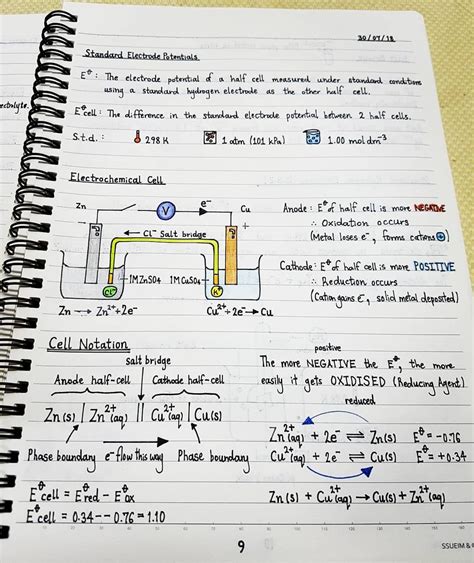 30/07/18
Standard Electrode Potentials
E⦵ : The electrode potential of a half cell measured under standard conditions
using a standard hydrogen electrode as the other half cell.
ectrolyte.
E⦵cell : The difference in the standard electrode potential between 2 half cells.
S.t.d. : 298 K 1 atm (101 kPa) 1.00 mol dm⁻³
Electrochemical Cell
Zn V e⁻ Cu
- +
← Cl⁻ Salt bridge
1M ZnSO4 1M CuSO4
Cl⁻ K⁺
Zn → Zn²⁺+2e⁻ Cu²⁺+2e⁻→Cu
Anode : E⦵ of half cell is more NEGATIVE
∴ Oxidation occurs
(Metal loses e⁻, forms cations ⊕)
Cathode : E⦵ of half cell is more POSITIVE
∴ Reduction occurs
(Cation gains e⁻, solid metal deposited)
Cell Notation
salt bridge
Anode half-cell Cathode half-cell
Zn(s) | Zn²⁺(aq) || Cu²⁺(aq) | Cu(s)
Phase boundary e⁻ flow this way Phase boundary
E⦵cell = E⦵red - E⦵ox
E⦵cell = 0.34 -- 0.76 = 1.10
positive
The more NEGATIVE the E⦵, the more
easily it gets OXIDISED (Reducing Agent)
reduced
Zn²⁺(aq) + 2e⁻ ⇌ Zn(s) E⦵ = -0.76
Cu²⁺(aq) + 2e⁻ ⇌ Cu(s) E⦵ = +0.34
Zn(s) + Cu²⁺(aq) → Cu(s) + Zn²⁺(aq)
9